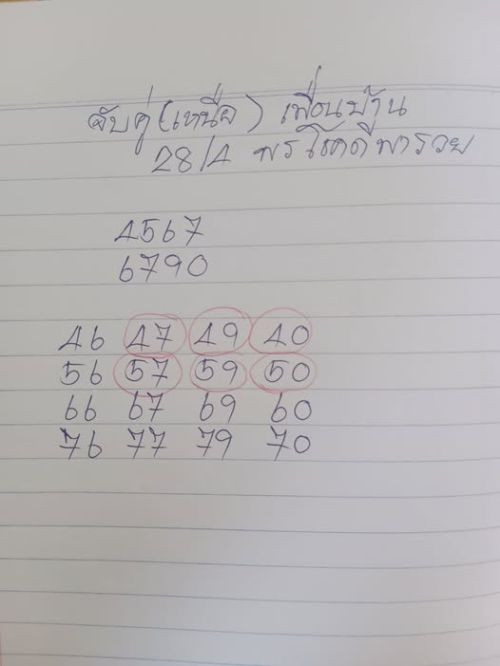 จับคู่ (เหนือ) เพื่อนบ้าน
28/4 พรโชคดีพารวย
4567
6790
46 47 49 40
56 57 59 50
66 67 69 60
76 77 79 70